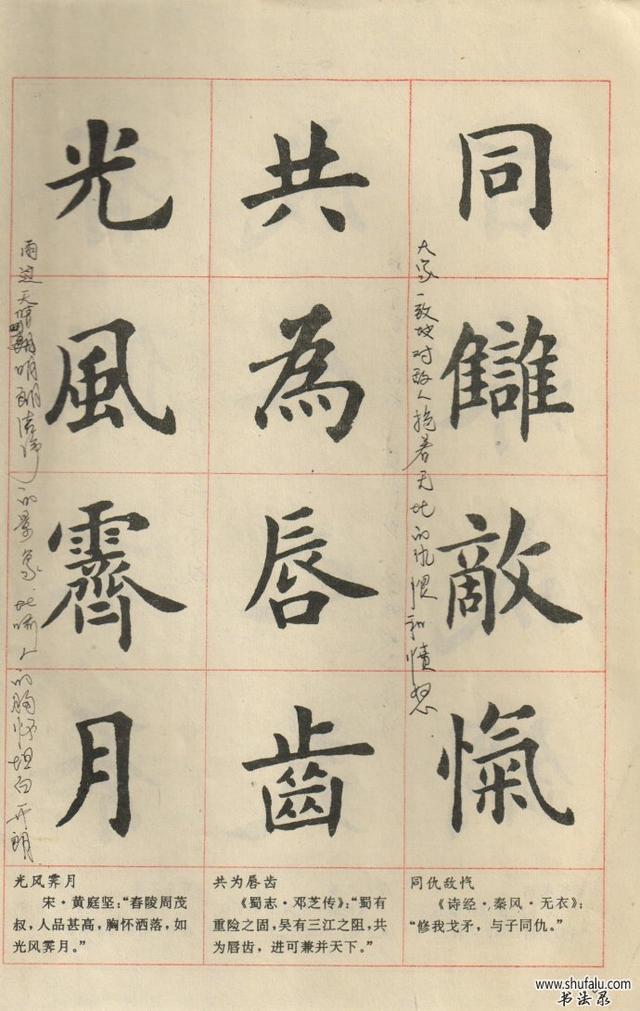 同讎敵愾
大家一致地对敌人抱着无比的仇恨和愤怒
共為唇齒
光風霽月
雨过天晴明朗洁净的景象.比喻人的胸怀坦白开朗
同仇敌忾
《诗经·秦风·无衣》:
“修我戈矛,与子同仇。”
共为唇齿
《蜀志·邓芝传》:“蜀有
重险之固,吴有三江之阻,共
为唇齿,进可兼并天下。”
光风霁月
宋·黄庭坚:“春陵周茂
叔,人品甚高,胸怀洒落,如
光风霁月。”
www.shufalu.com
书法录